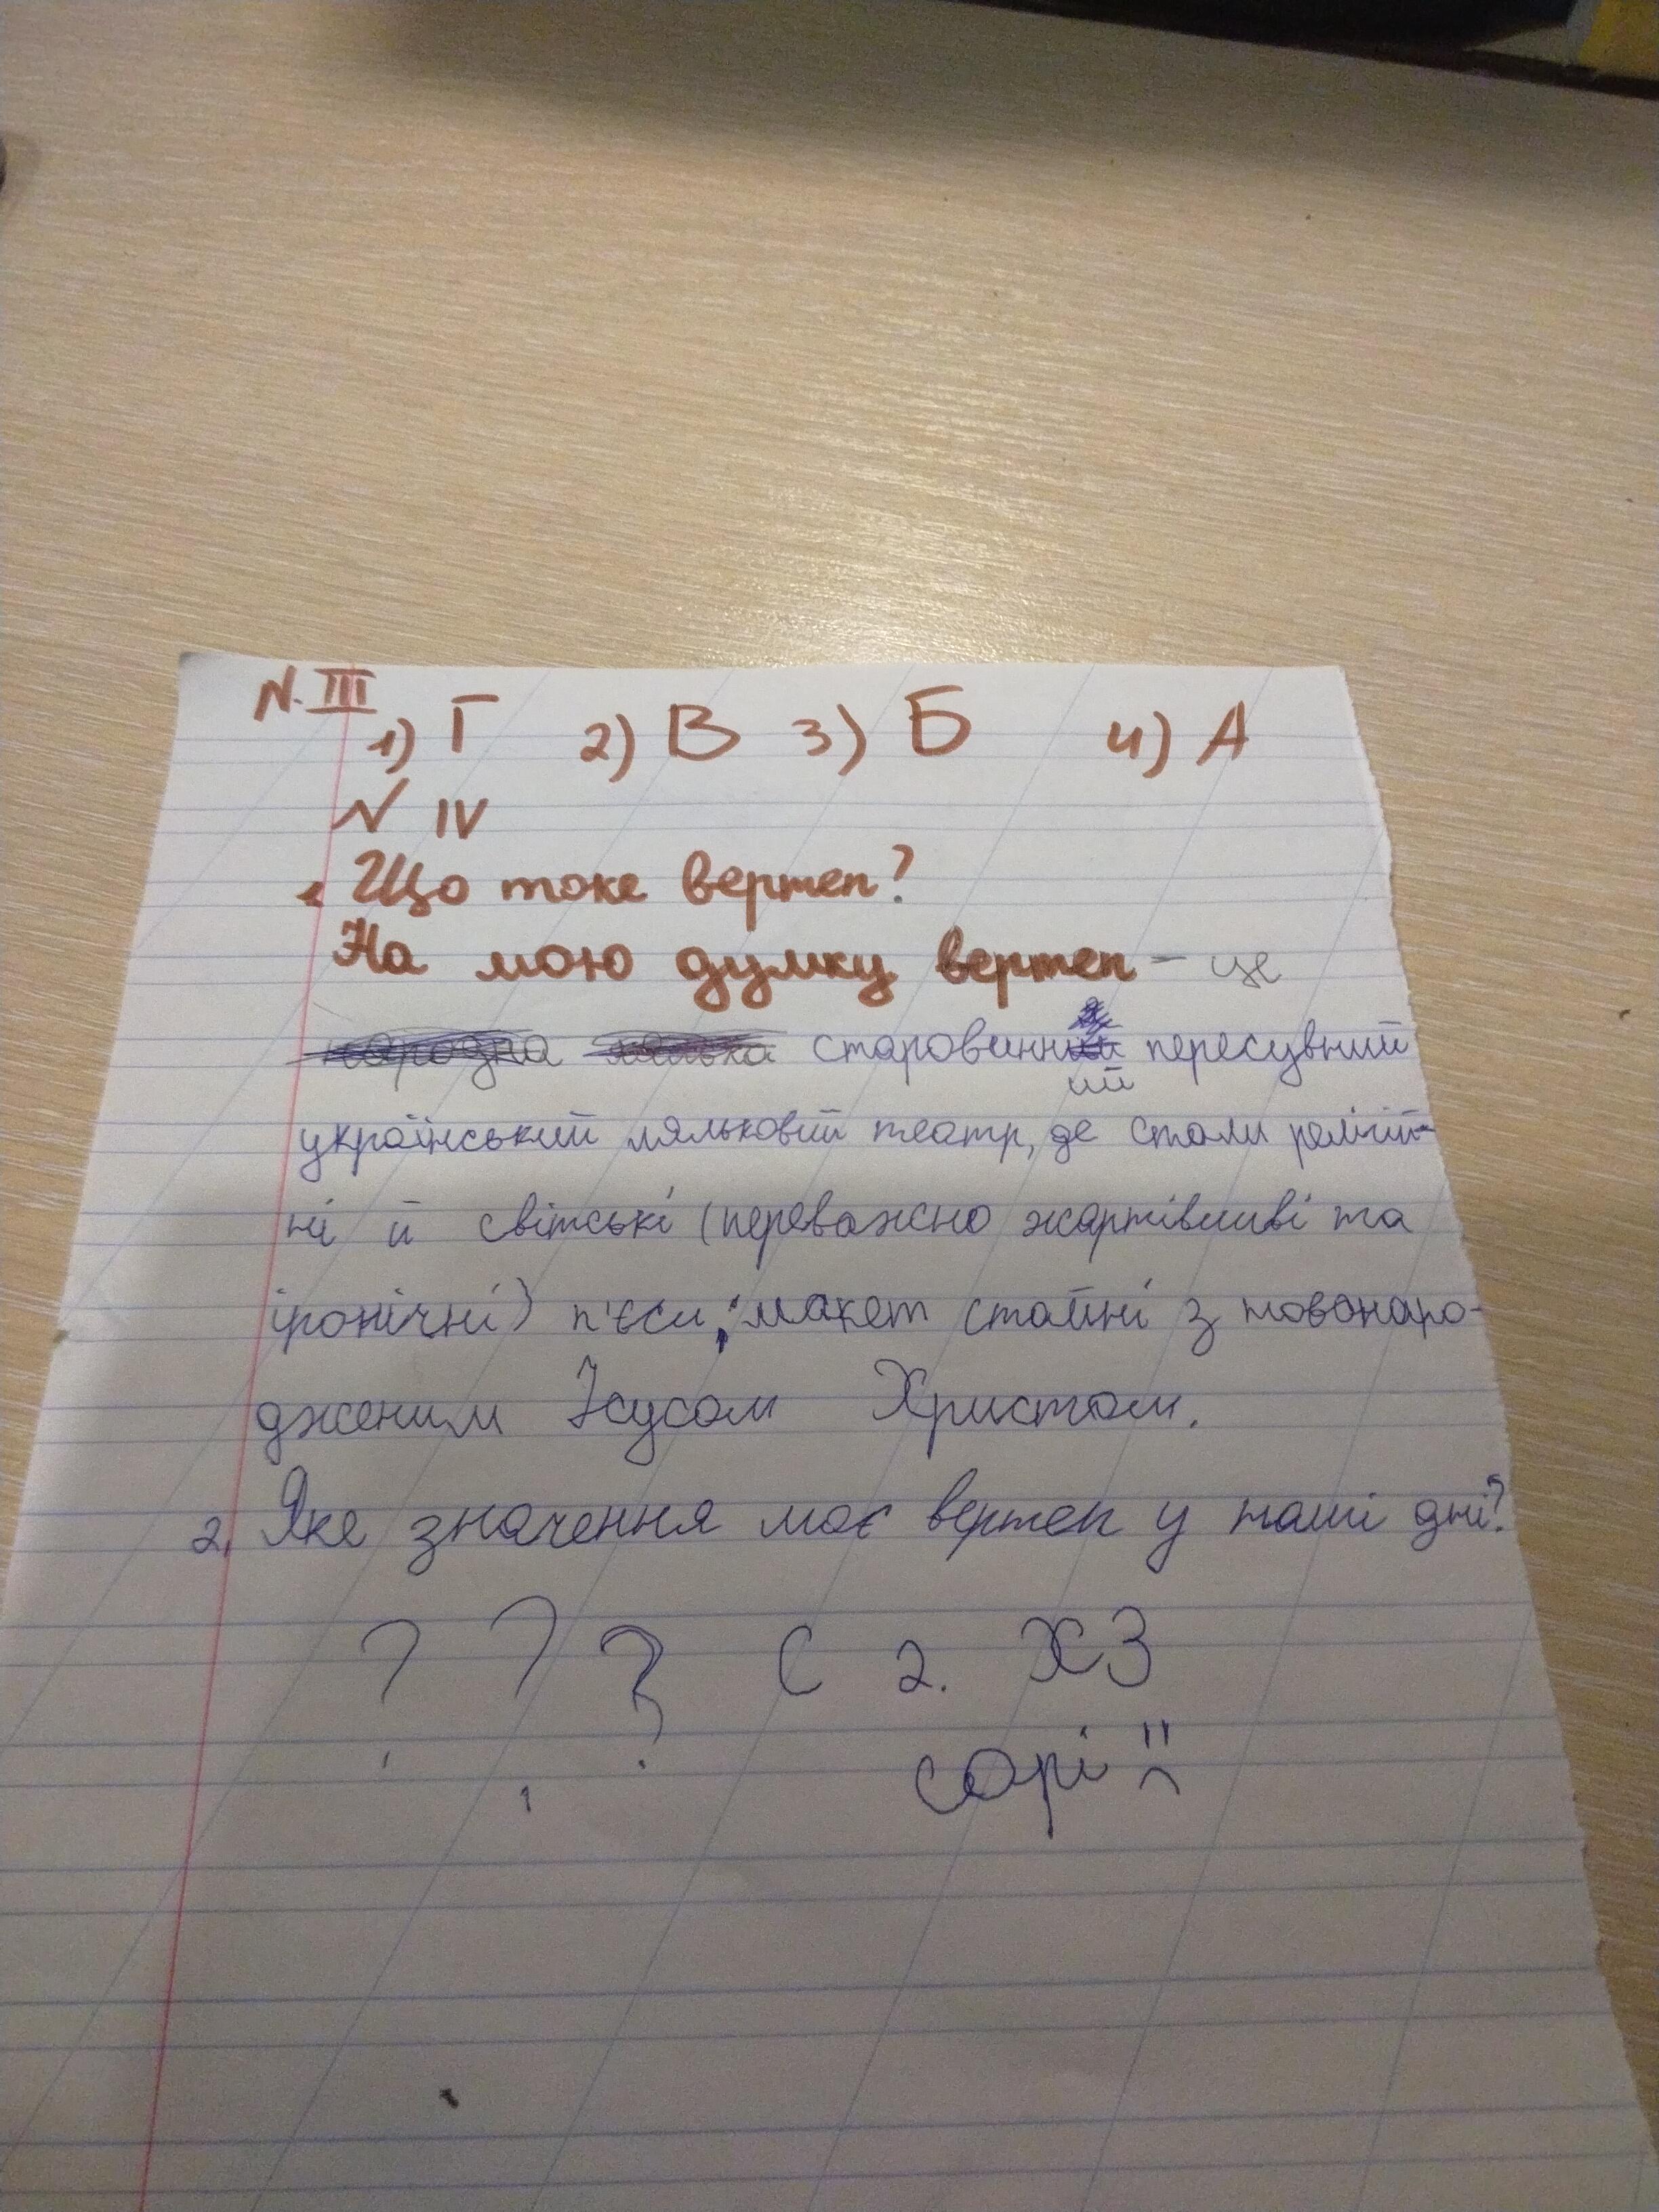 N. III
1) Г 2) В 3) Б 4) А
N IV
1. Що таке вертеп?
На мою думку вертеп - це
народна лялька старовинний пересувний
український ляльковий театр, де стали релігій-
ні й світські (переважно жартівливі та
іронічні) п'єси; макет стайні з новонаро-
дженим Ісусом Христом.
2. Яке значення має вертеп у наші дні?
? ? ? С 2. ХЗ
сорі